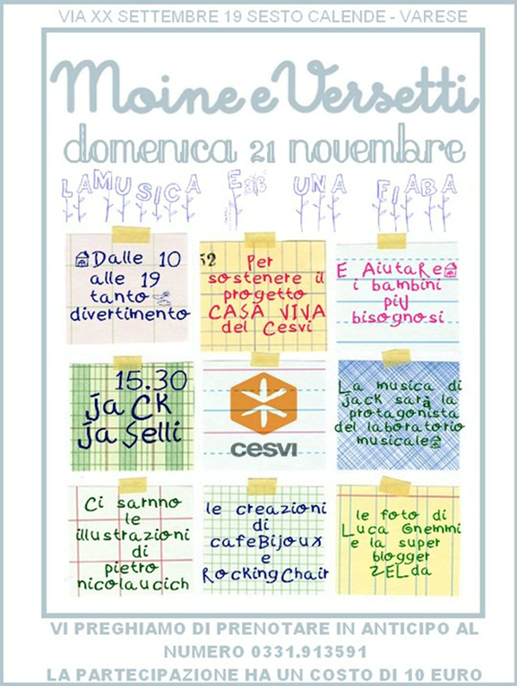 VIA XX SETTEMBRE 19 SESTO CALENDE - VARESE
Moine e Versetti
domenica 21 novembre
LA MUSICA E' UNA FIABA
Dalle 10
alle 19
tanto
divertimento
52
Per
sostenere il
progetto
CASA VIVA
del Cesvi
E AiutaRe
i bambini
più
bisognosi
15.30
JaCK
JaSelli
cesvi
La musica di
Jack sarà la
protagonista
del laboratorio
musicale
Ci sarnno
le
illustrazioni
di
pietro
nicolaucich
le creazioni
di
cafeBijoux
e
RockingChair
le foto di
Luca Gnemmi
e la super
blogger
ZELda
VI PREGHIAMO DI PRENOTARE IN ANTICIPO AL
NUMERO 0331.913591
LA PARTECIPAZIONE HA UN COSTO DI 10 EURO